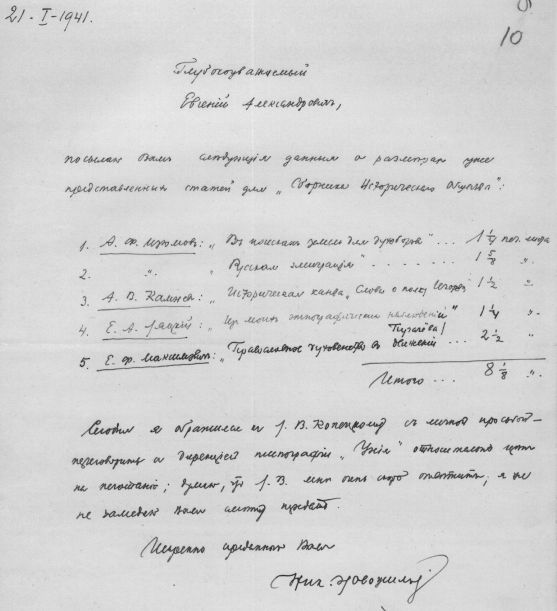 21-I-1941.
10
Глубокоуважаемый
Евгений Александровичъ,
посылаю Вамъ следующiя данныя о размѣрах уже
представленных статей для „Сборника Исторического Общества":
1. А. Ф. Изюмовъ: „Въ поисках земли для духоборов" ... 1 1/4 печ. листа
2. „ „Русская эмиграция" ....... 1 „
3. А. В. : „Историческая канва „Слова о полку Игореве" 1 1/2 „
4. Е. А. Ляцкий: „Из моих этнографических наблюдений" 1 1/4 „
5. Е. Ф. Максимович: „Православное духовенство в движении Пугачёва" ... 2 1/2 „
Итого ... 8 1/8 „
Сегодня я обратился к В. с личной просьбой
переговорить с дирекцiей типографiи „ " относительно цен
на печатанiе; думаю, что В. мне очень скоро ответит; я же
не замедлю Вам ответ передать.
Искренно преданный Вам
Ник.